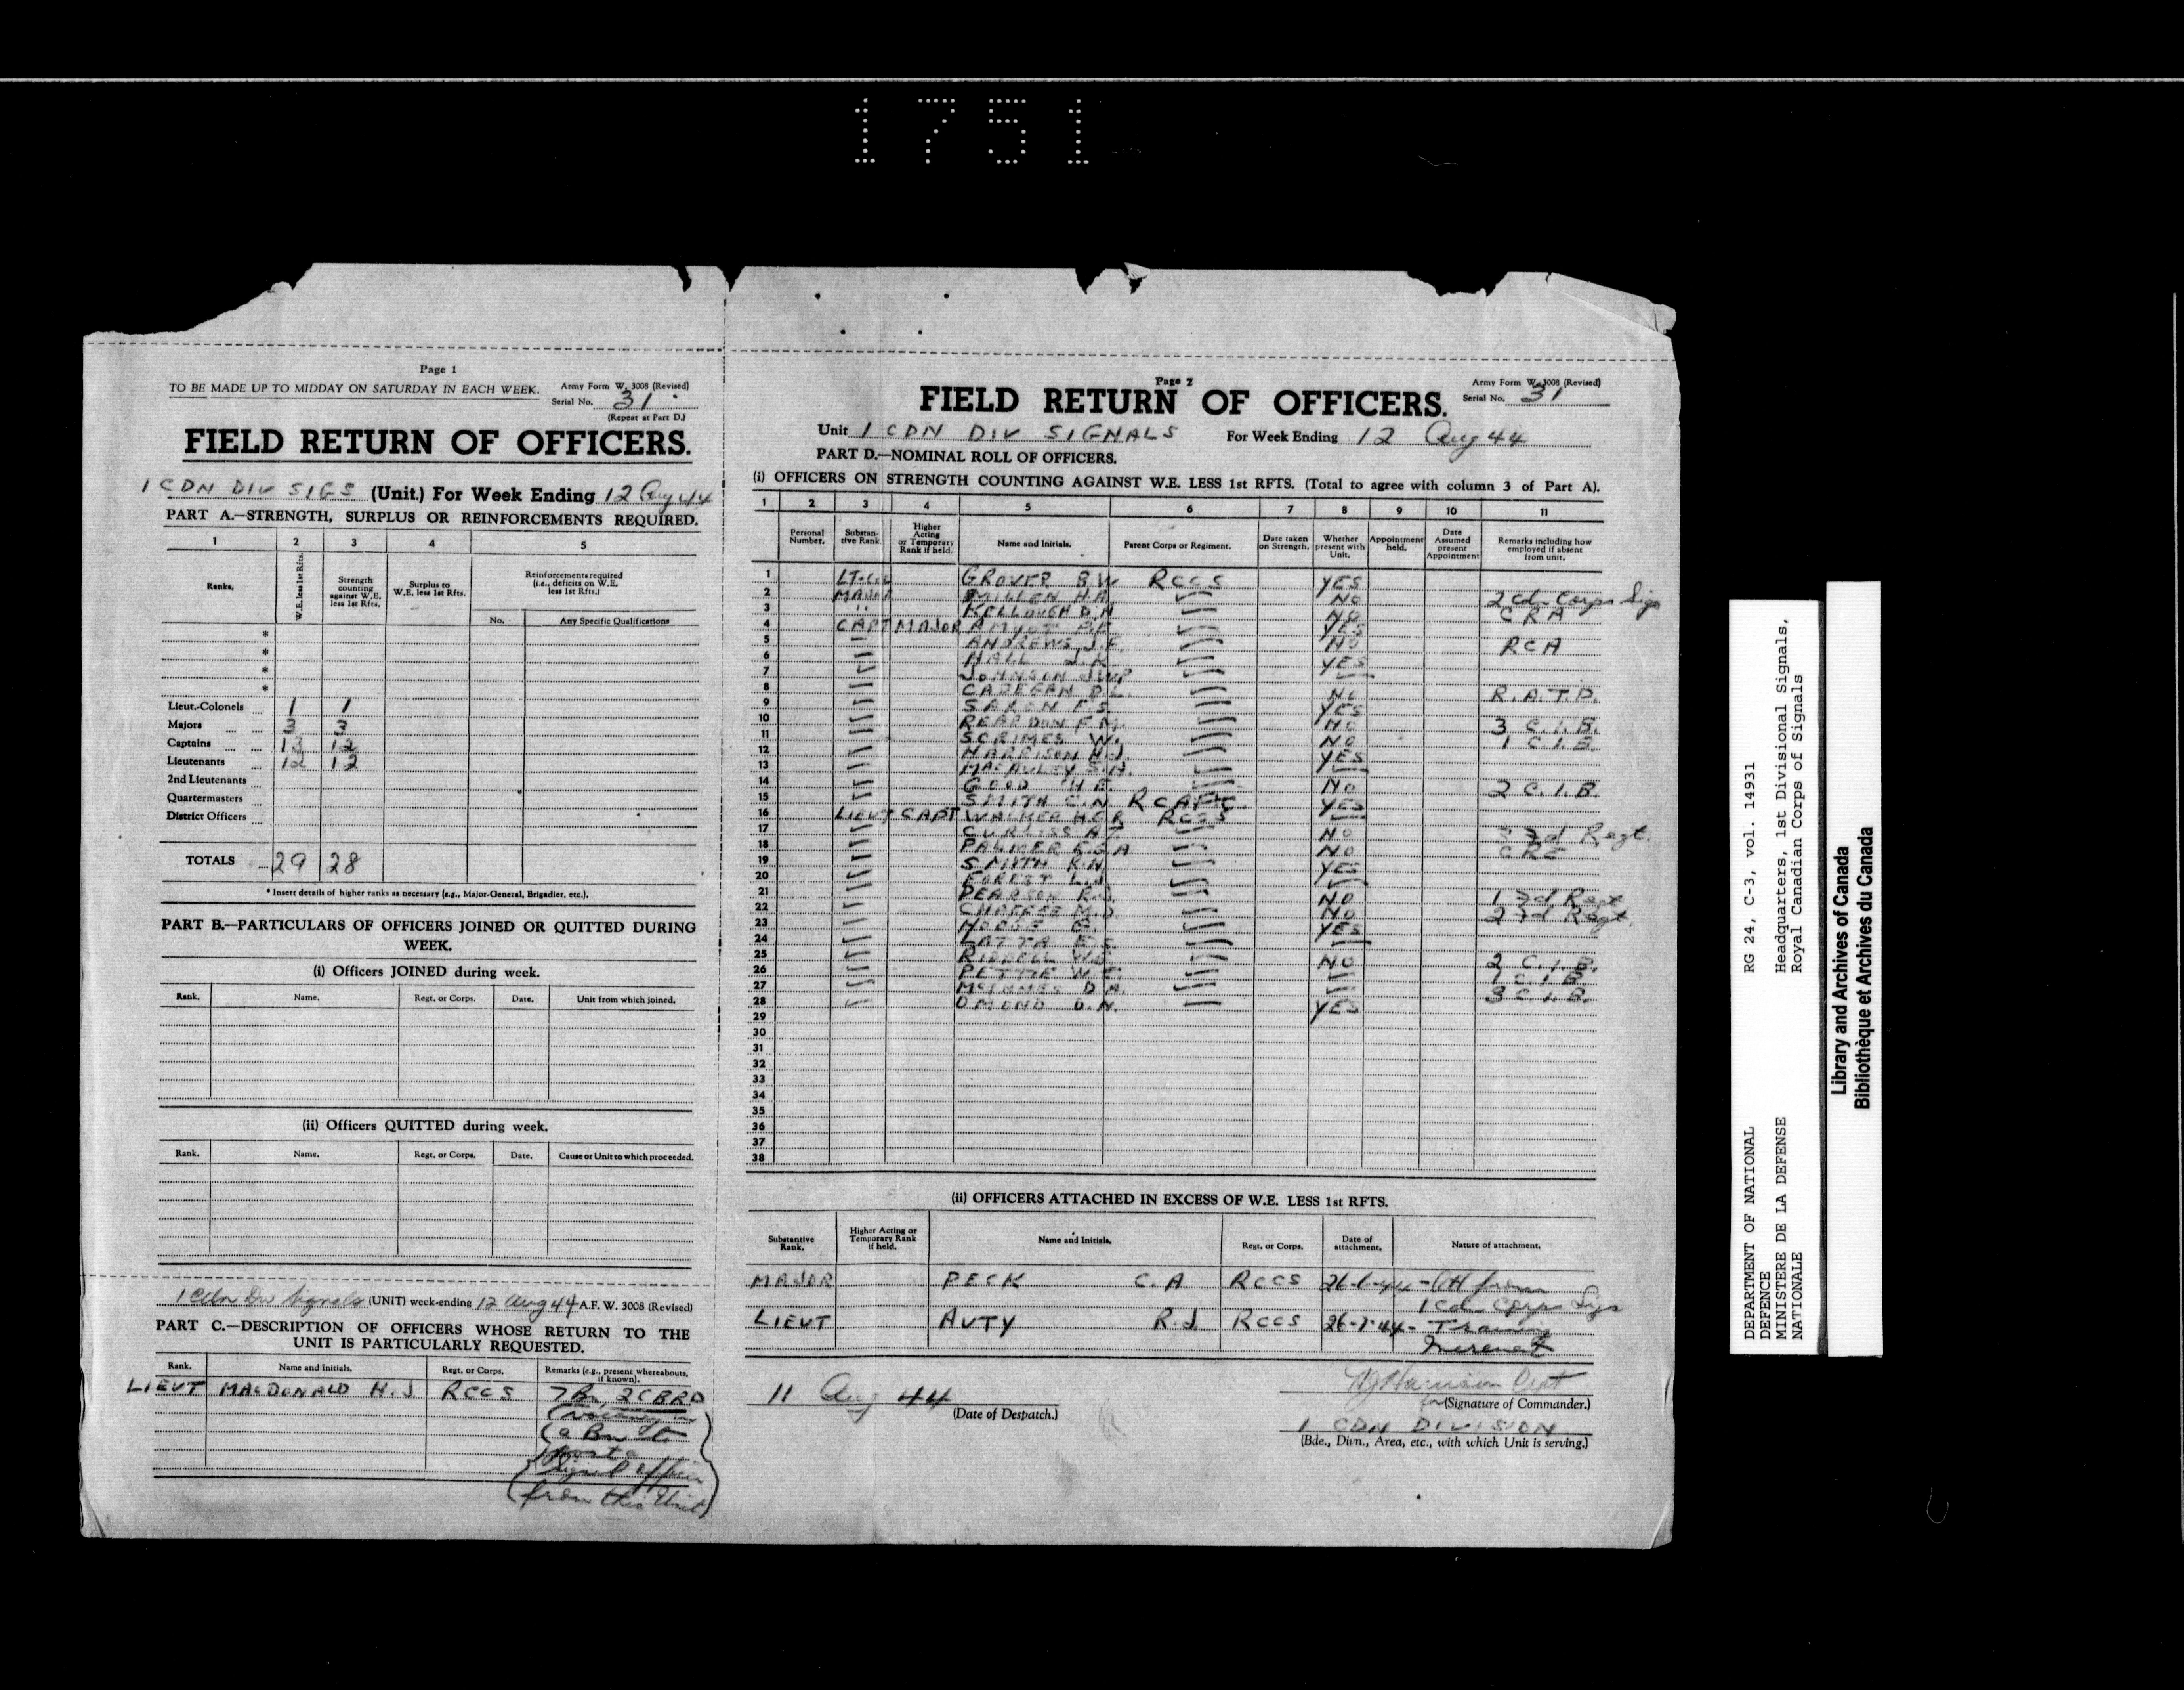 1751
Page 1
TO BE MADE UP TO MIDDAY ON SATURDAY IN EACH WEEK.
Army Form W. 3008 (Revised)
Serial No. 31
(Repeat at Part D.)
FIELD RETURN OF OFFICERS.
1 CDN DIV SIGS (Unit.) For Week Ending 12 Aug 44
PART A.—STRENGTH, SURPLUS OR REINFORCEMENTS REQUIRED.
1 2 3 4 5
Ranks.
W.E. less 1st Rfts.
Strength counting against W.E. less 1st Rfts.
Surplus to W.E. less 1st Rfts.
Reinforcements required (i.e., deficits on W.E. less 1st Rfts.)
No. Any Specific Qualifications
*
*
*
*
Lieut.-Colonels 1 1
Majors 3 3
Captains 13 12
Lieutenants 12 12
2nd Lieutenants
Quartermasters
District Officers
TOTALS 29 28
* Insert details of higher ranks as necessary (e.g., Major-General, Brigadier, etc.).
PART B.—PARTICULARS OF OFFICERS JOINED OR QUITTED DURING
WEEK.
(i) Officers JOINED during week.
Rank. Name. Regt. or Corps. Date. Unit from which joined.
(ii) Officers QUITTED during week.
Rank. Name. Regt. or Corps. Date. Cause or Unit to which proceeded.
1 Cdn Div Signals (UNIT) week-ending 12 Aug 44 A.F. W. 3008 (Revised)
PART C.—DESCRIPTION OF OFFICERS WHOSE RETURN TO THE
UNIT IS PARTICULARLY REQUESTED.
Rank. Name and Initials. Regt. or Corps. Remarks (e.g., present whereabouts, if known).
LIEUT MACDONALD H.J RCCS 7 Bn 2CBRD
a Bn to
Signal officer
from this Unit)
Page 2
Army Form W. 3008 (Revised)
FIELD RETURN OF OFFICERS.
Serial No. 31
Unit 1 CDN DIV SIGNALS For Week Ending 12 Aug 44
PART D.—NOMINAL ROLL OF OFFICERS.
(i) OFFICERS ON STRENGTH COUNTING AGAINST W.E. LESS 1st RFTS. (Total to agree with column 3 of Part A).
1 2 3 4 5 6 7 8 9 10 11
Personal Number.
Substantive Rank.
Higher Acting or Temporary Rank if held.
Name and Initials.
Parent Corps or Regiment.
Date taken on Strength.
Whether present with Unit.
Appointment held.
Date Assumed present Appointment
Remarks including how employed if absent from unit.
1 LT-COL GROVER B W RCCS YES
2 MAJOR MILLEN H.A NO 2 Cdn Corps Sigs
3 " KELLOUGH D.H NO CRA
4 CAPT MAJOR AMYOT P.E YES
5 ANDREWS J.E. NO RCA
6 HALL J.K YES
7 JOHNSON J.W.P
8 CADEGAN D.L NO R.A.T.D.
9 SAXON F.S. YES
10 REARDON F.M. NO 3 C.I.B.
11 SCRIMES W. NO 1 C.I.B
12 HARRISON H.J YES
13 MACAULEY S.H.
14 GOOD H.E. NO 2 C.I.B.
15 SMITH C.N. RCAPC YES
16 LIEUT CAPT WALKER H.C.R RCCS
17 CURLISS A NO Fd Regt.
18 PALMER E.G.A NO CRE
19 SMITH K.N. YES
20 FOREST L.J
21 PEARSON R.J NO 1 Fd Regt
22 CHAFFEE M.D NO 2 Fd Regt.
23 HODGE E. YES
24 LATTA E.S.
25 RIDDELL W.E. NO 2 C.I.B.
26 PETTIE W.E. 1 C.I.B
27 MCINNES D.A. 3 C.I.B.
28 OMOND D.N. YES
29
30
31
32
33
34
35
36
37
38
(ii) OFFICERS ATTACHED IN EXCESS OF W.E. LESS 1st RFTS.
Substantive Rank. Higher Acting or Temporary Rank if held. Name and Initials. Regt. or Corps. Date of attachment. Nature of attachment.
MAJOR PECK C.A RCCS 26-6-44 - Att from
1 Cdn Corps Sigs
LIEUT AUTY R.J. RCCS 26-7-44 - Training
Increment
11 Aug 44
(Date of Despatch.)
HJHarrison Capt
for (Signature of Commander.)
1 CDN DIVISION
(Bde., Divn., Area, etc., with which Unit is serving.)
DEPARTMENT OF NATIONAL
DEFENCE
MINISTERE DE LA DEFENSE
NATIONALE
RG 24, C-3, vol. 14931
Headquarters, 1st Divisional Signals,
Royal Canadian Corps of Signals
Library and Archives of Canada
Bibliothèque et Archives du Canada